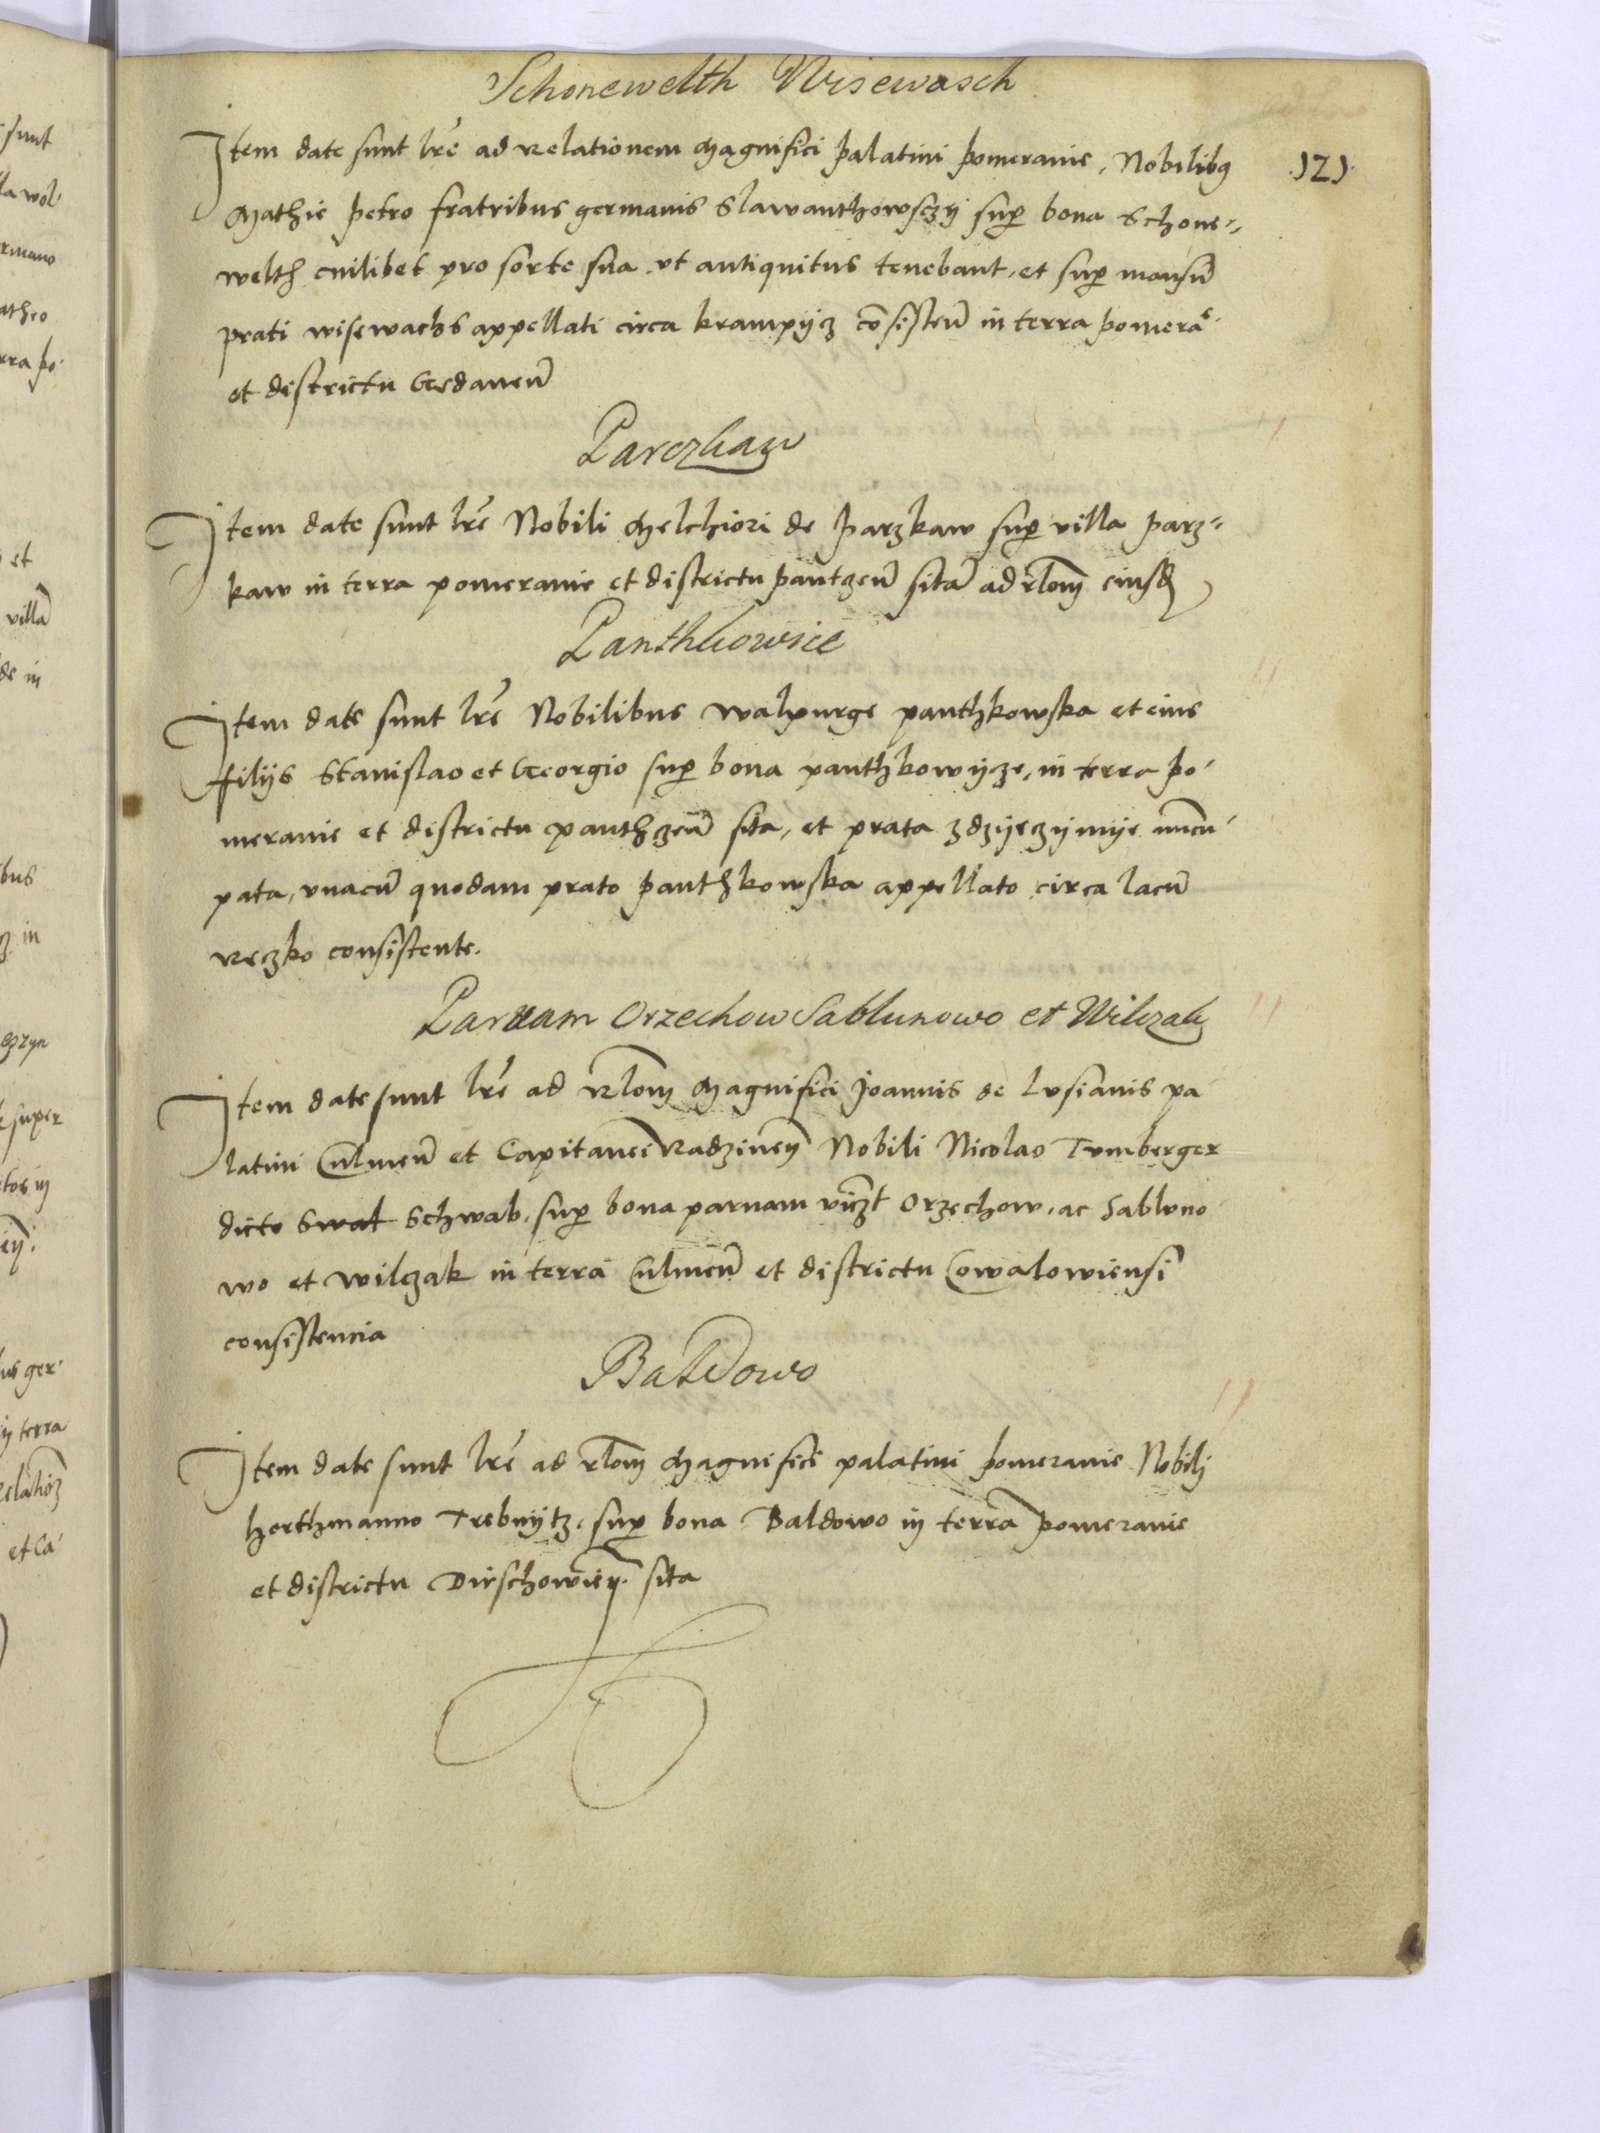 Schonewelth Wisewasch
Item date sunt lre ad relationem Magnifici palatini pomeranie, Nobilibus
121
Mathie petro fratribus germanis Slawanthowsczÿ sup bona Schone-
welth cuilibet pro sorte sua ut antiquitus tenebant, et sup mansu
prati wisewachs appellati circa krampÿcz cosisten in terra pomera
et districtu Gedanen
Parczkaw
Item date sunt lre Nobili Melchiori de Parzkaw sup villa parz-
kaw in terra pomeranie et districtu pautzen sita ad rlom eiusd
Panthkowice
Item date sunt lre Nobilibus walpurge panthkowska et eius
filijs Stanislao et Georgio sup bona panthkowÿcze, in terra po
meranie et districtu panthczen sita, et prata zdzÿeczÿmÿe nucu
pata, unacu quodam prato panthkowska appellato circa lacu
reczko consistente.
Parnam Orzechow Sablunowo et Wilczak
Item date sunt lre ad rlom Magnifici Joannis de Lusianis pa
latini Culmen et Capitanei Radzinen Nobili Nicolao Tumberger
dicto Swat Schwab, sup bona parnam viczt Orzechow, ac Sabluno
wo et wilczak in terra Culmen et districtu Cowalowiensi
consistencia
Baldowo
Item date sunt lre ad rlom Magnifici palatini pomeranie Nobili
herthmanno Trebnÿtz, sup bona Baldowo in terra pomeranie
et districtu Dirschowien. sita